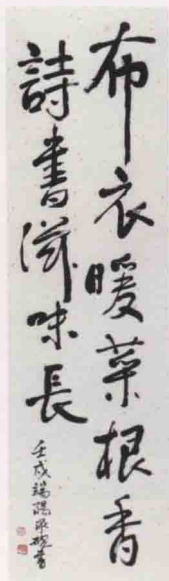 布衣暖菜根香
詩書滋味長
壬戌端陽